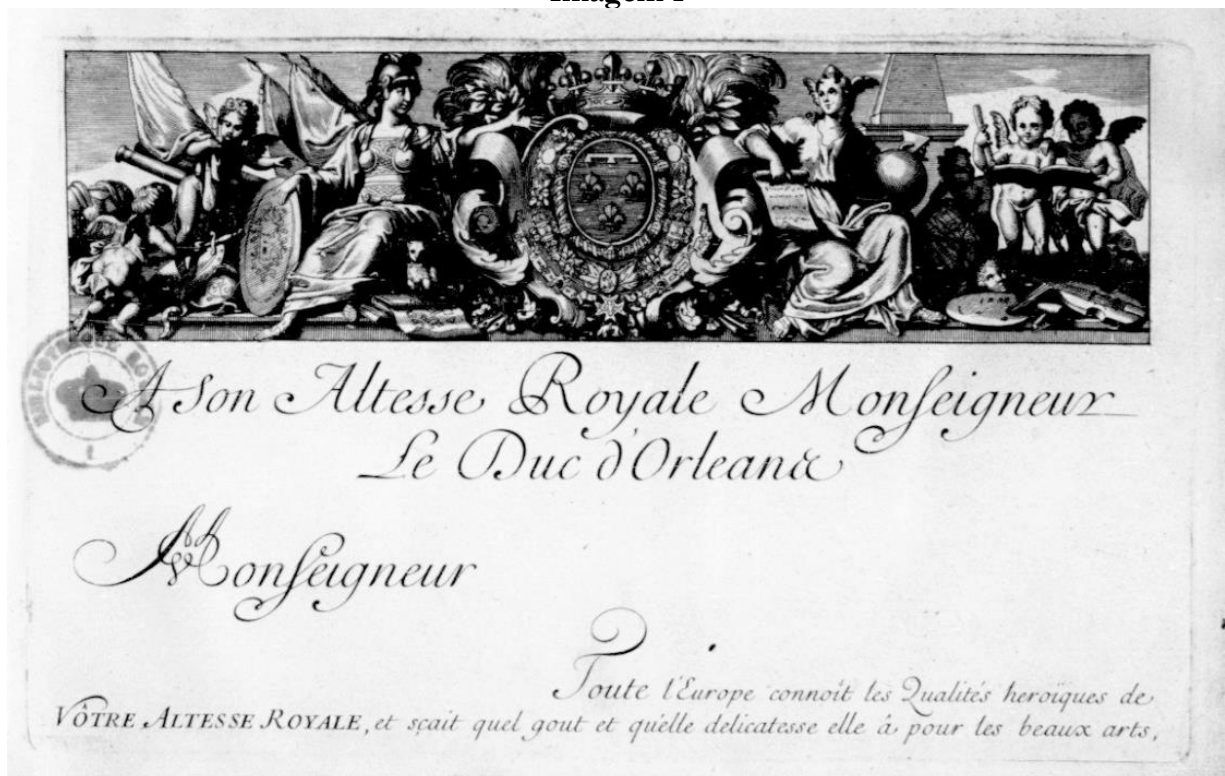 Imagem 1
A Son Altesse Royale Monseigneur
Le Duc d'Orleans
Monseigneur
Toute l'Europe connoît les Qualités heroïques de
VÔTRE ALTESSE ROYALE, et sçait quel gout et qu'elle delicatesse elle â pour les beaux arts,